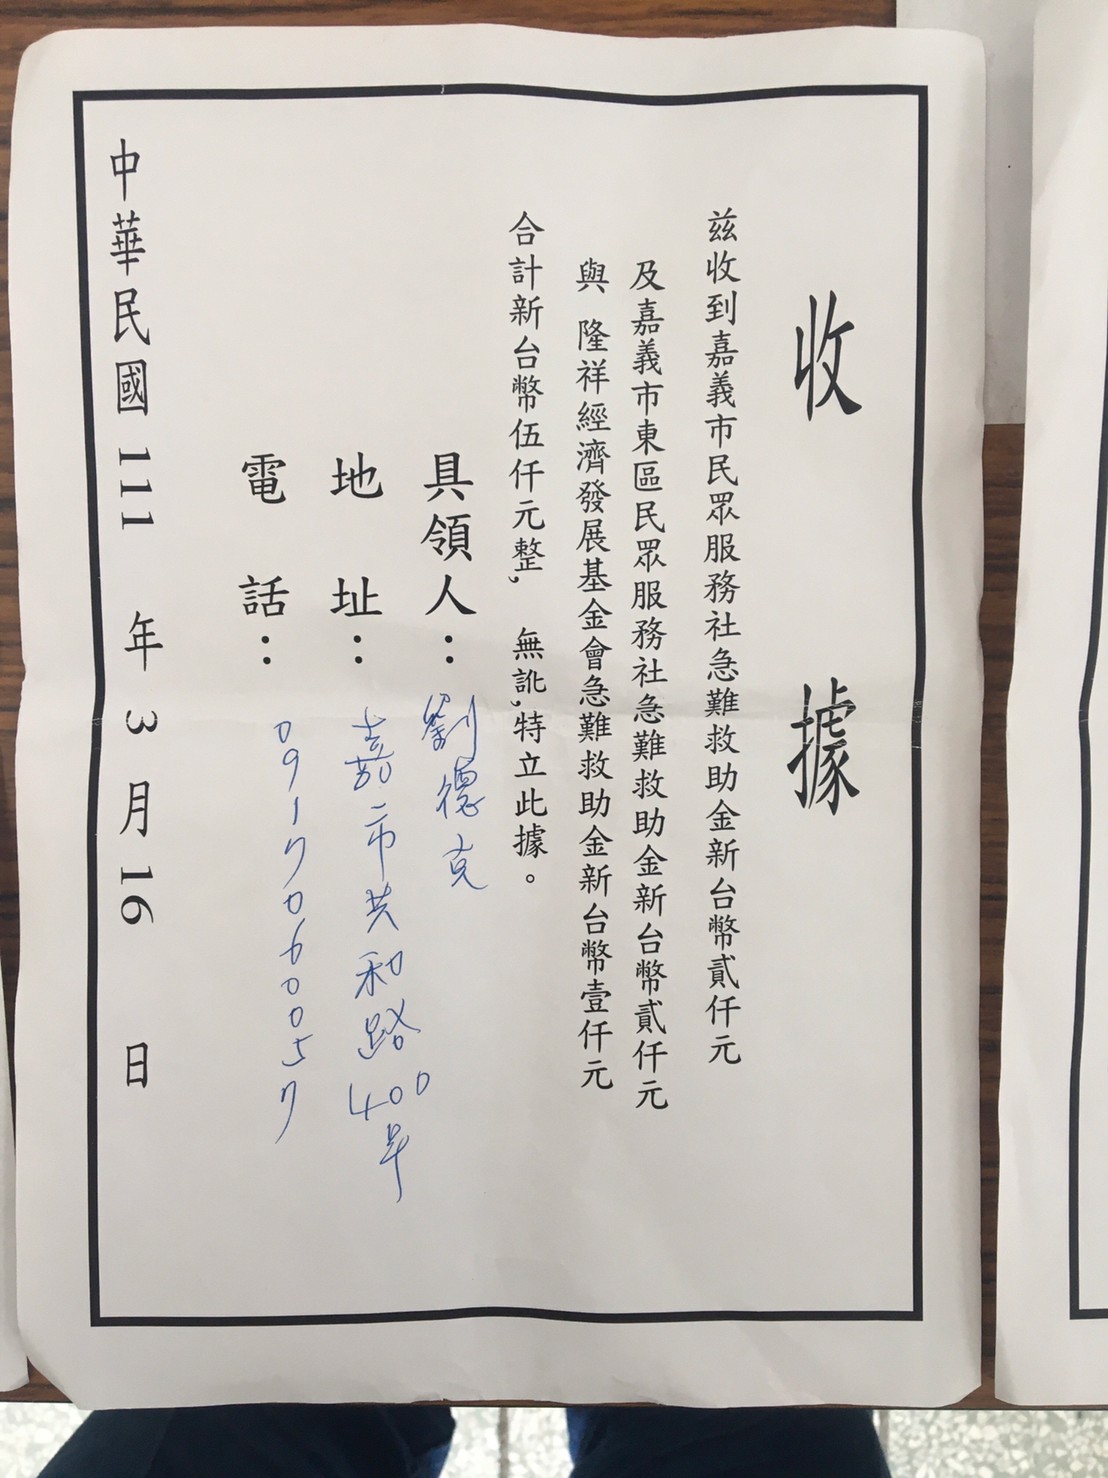 收據
茲收到嘉義市民眾服務社急難救助金新台幣貳仟元
及嘉義市東區民眾服務社急難救助金新台幣貳仟元
與 隆祥經濟發展基金會急難救助金新台幣壹仟元
合計新台幣伍仟元整, 無訛,特立此據。
具領人：劉德克
地址：嘉市共和路400号
電話：0917060057
中華民國111 年 3 月 16 日